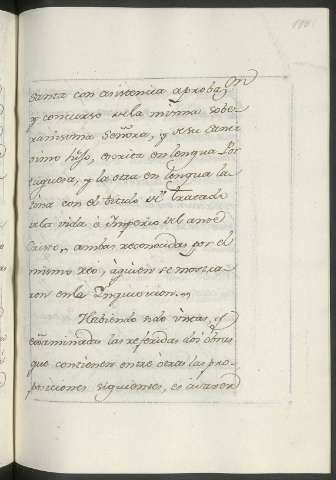 Santa con asistencia aprobaᵒⁿ
y concurso de la misma sobe
ranissima Señora, y de su Santi
simo hijo, escrita en lengua Por
tuguesa, y la otra en lengua la
tina con el titulo de Tractado
de la vida è Imperio del ante
Cristo, ambas reconocidas por el
mismo reo, à quien se mostra
ron en la Inquisicion.
Habiendo sido vistas, y
examinadas las referidas dos obras
que contienen entre otras las pro-
posiciones siguientes, es à saver